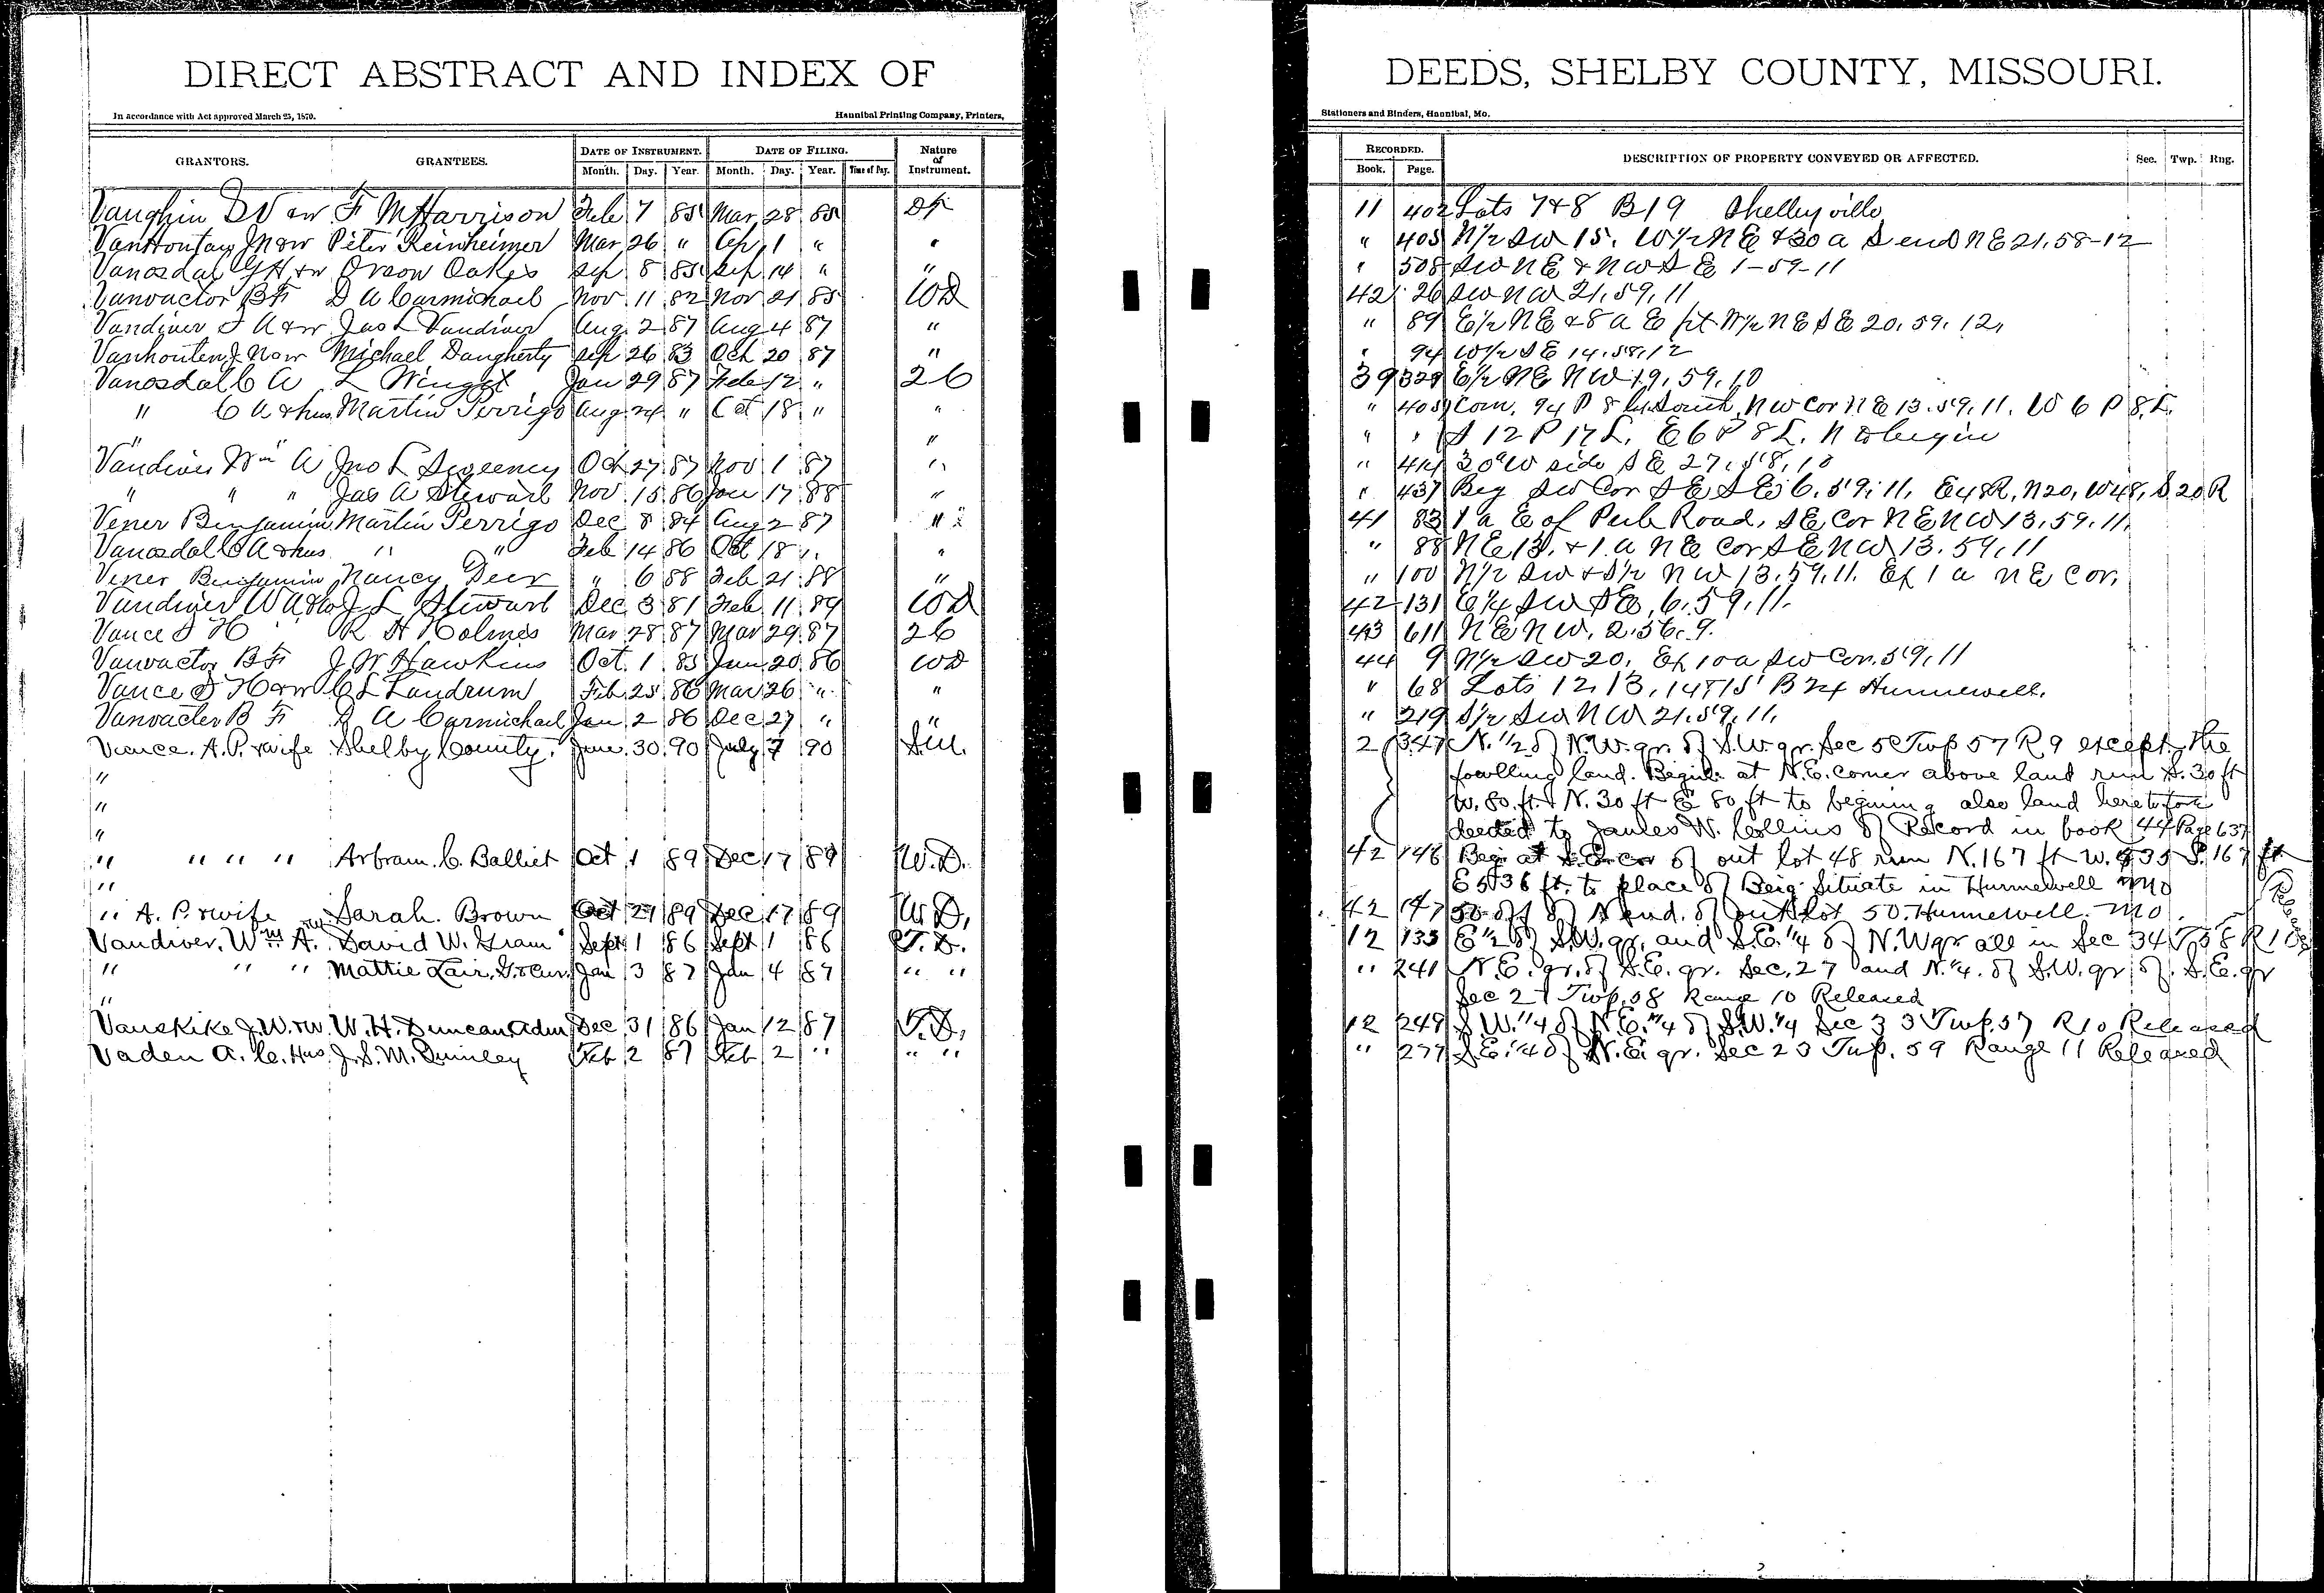 DIRECT ABSTRACT AND INDEX OF
In accordance with Act approved March 25, 1870. Hannibal Printing Company, Printers,
GRANTORS. GRANTEES. DATE OF INSTRUMENT. DATE OF FILING. Nature of Instrument.
Month. Day. Year. Month. Day. Year. Time of Day.
Vaughin D V & w F M Harrison Feb 7 85 Mar 28 85 Dt
VanHouton J N & w Peter Reinheimer Mar 26 " Ap 1 " "
Vanosdal G H & w Orson Oakes Sep 8 85 Sep 14 " "
Vanvactor B F D A Carmichael Nov 11 82 Nov 21 85 WD
Vandiver J A & w Jas L Vandiver Aug 2 87 Aug 4 87 "
Vanhouten J N & w Michael Daugherty Sep 26 83 Oct 20 87 "
Vanosdal C A L Wingot Jan 29 87 Feb 12 " 26
" C A & hus Martin Perrigo Aug 24 " Oct 18 " "
" " "
Vandiver Wm A Jno L Sweeney Oct 27 87 Nov 1 87 "
" " " Jas A Stewart Nov 15 86 Jan 17 88 "
Vener Benjamin Martin Perrigo Dec 8 84 Aug 2 87 "
Vanosdal C A & hus " " Feb 14 86 Oct 18 " "
Vener Benjamin Nancy Deer " 6 88 Feb 21 88 "
Vandiver W A & w J L Stewart Dec 3 81 Feb 11 89 WD
Vance J H " R H Holmes Mar 28 87 Mar 29 87 26
Vanvactor B F J W Hawkins Oct 1 85 Jan 20 86 WD
Vance J H & w C L Landrum Feb 25 86 Mar 26 " "
Vanvacter B F D A Carmichael Jan 2 86 Dec 27 " "
Vance. A.P. & wife Shelby County. June 30 90 July 7 90 S.M.
"
"
"
" " " " Arbram. C. Balliet Oct 1 89 Dec 17 89 W.D.
"
" A. P. & wife Sarah. Brown Oct 29 89 Dec 17 89 W.D.
Vandiver. Wm A. David W. Gram Sept 1 86 Sept 1 86 T.D.
" " " Mattie Lair. G. & Cur. Jan 3 87 Jan 4 87 " "
"
Vanskike J.W. & w. W. H. Duncan Adm Dec 31 86 Jan 12 87 T.D.
Vaden A. C. & Hus. J. S. M. Quinley Feb 2 87 Feb 2 " " "
DEEDS, SHELBY COUNTY, MISSOURI.
Stationers and Binders, Hannibal, Mo.
RECORDED. DESCRIPTION OF PROPERTY CONVEYED OR AFFECTED. Sec. Twp. Rng.
Book. Page.
11 402 Lots 7 & 8 B 19 Shelbyville
" 405 N½ SW 15. W½ NE & 30 a S end NE 21.58-12
" 508 SW NE & NW SE 1-59-11
42 26 SW NW 21.59.11
" 89 E½ NE & 8 a E pt N½ NE SE 20.59.12.
" 94 W½ SE 14.58.12
39 329 E½ NE NW 19.59.10
" 405 Com. 94 P 8 L South N W Cor NE 13.59.11. W 6 P 8 L.
" " S 12 P 17 L. E 6 P 8 L. N to begin
" 414 30 a W side SE 27.58.10
" 437 Beg SW Cor SE SE 6.59.11. E 48 R, N 20, W 48, S 20 R
41 83 1 a E of Pub Road, SE Cor NE NW 13.59.11.
" 88 NE 13. & 1. a NE Cor SE NW 13.59.11
" 100 N½ SW & S½ NW 13.59.11. Ex 1 a NE Cor.
42 131 E¼ SW SE 6.59.11.
43 611 NE NW. 2.56.9.
44 9 N½ SW 20. Ex 10 a SW Cor. 59.11
" 68 Lots 12, 13, 14 & 15 B 24 Hunnewell.
" 219 S½ SW NW 21.59.11.
2 347 N. ½ of N.W. qr. of S.W. qr. Sec 5 Twp 57 R 9 except the
fowlling land. Begin at N.E. corner above land run S. 30 ft
W. 80 ft. N. 30 ft E 80 ft to begining also land heretofore
deeded to James W. Collins of Record in book 44 Page 637
42 146 Beg. at S.E. cor of out lot 48 run N. 167 ft W. 535 S. 167 ft
E 536 ft. to place of Beig. Situate in Hunnewell Mo
42 147 50 of f of N end. of out lot 50. Hunnewell. Mo.
12 135 E ½ of S.W. qr. and S.E. ¼ of N.W qr all in Sec 34 T 58 R 10
Released
" 241 N.E. qr. of S.E. qr. Sec. 27 and N. ¼. of S.W. qr of. S.E. qr
Sec 27 Twp. 58 Range 10 Released
12 249 S.W. ¼ of N.E. ¼ of S.W. ¼ Sec 33 Twp. 57 R 10 Released
" 277 S.E. ¼ of N.E. qr. Sec 23 Twp. 59 Range 11 Released